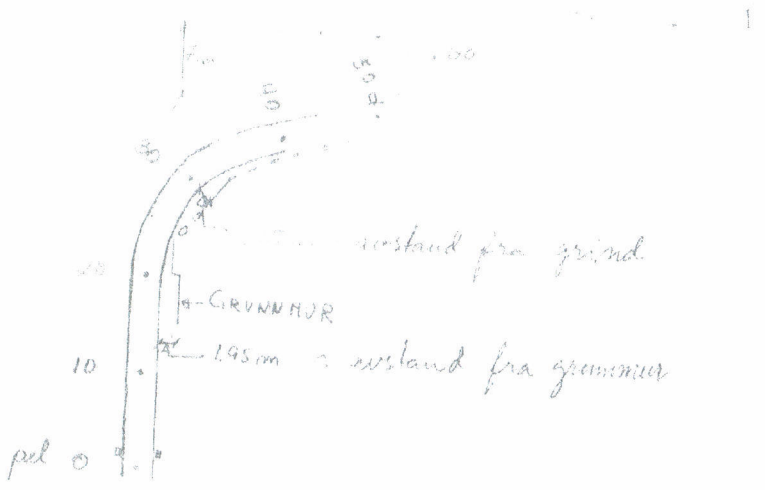 1
50
40
30
avstand fra grind
20
GRUNNMUR
1,95 m = avstand fra grunnmur
10
pel 0